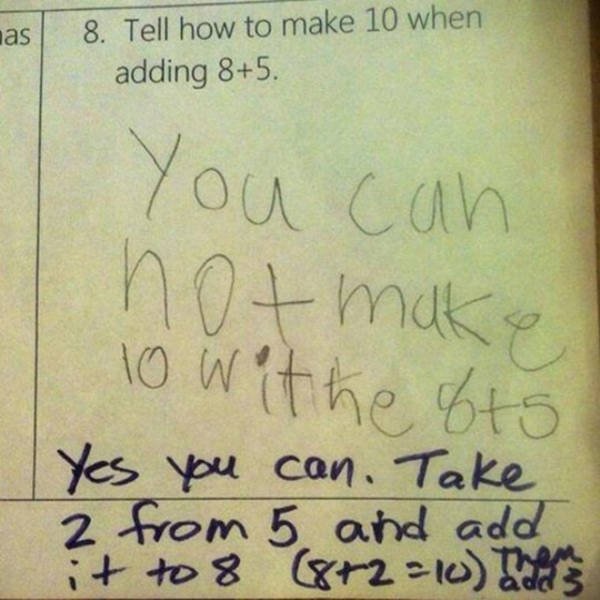 as
8. Tell how to make 10 when
adding 8+5.
You can
not make
10 withthe 8+5
Yes you can. Take
2 from 5 and add
it to 8 (8+2=10) Then
add 3